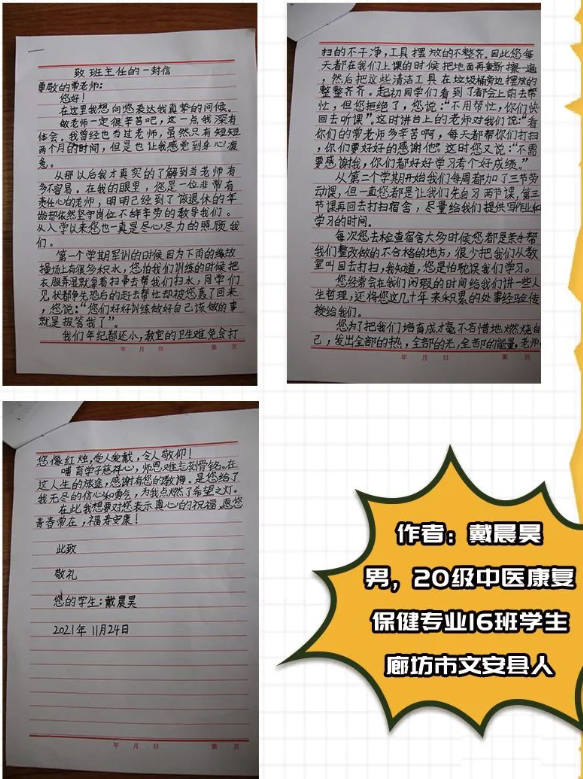 致班主任的一封信
尊敬的常老师：
您好！
在这里我想向您表达我真挚的问候。
做老师一定很辛苦吧，这一点我深有
体会，我曾经也当过老师，虽然只有短短
两个月的时间，但是也让我感觉到身心疲
惫。
从那以后我才真实的了解到当老师有
多不容易。在我的眼里，您是一位非常有
责任心的老师，明明已经到了该退休的年
龄却依然坚守岗位不辞辛劳的教导我们。
从入学以来您也一直是尽心尽力的照顾我
们。
第一个学期军训的时候因为下雨的缘故
操场上有很多积水，您怕我们训练的时候把
衣服弄湿就拿着扫帚去帮我们扫水，同学们
见状都争先恐后的赶去帮忙却被您轰了回来
，您说：“你们好好训练做好自己该做的事
就是报答我了”。
我们年纪都还小，教室的卫生难免会打
年 月 日 第 页
扫的不干净，工具摆放的不整齐。因此您每
天都在我们上课的时候把地面再重新擦一遍
，然后把这些清洁工具在垃圾桶旁边摆放的
整整齐齐。起初同学们看到了都会上前去帮
忙，但您拒绝了，您说：“不用帮忙，你们快
回去听课”。这时讲台上的老师对我们说：“看
你们的常老师多辛苦啊，每天都帮你们打扫
，你们要好好的感谢他”这时您又说：“不需
要感谢我，你们都好好学习考个好成绩。”
从第二个学期开始我们每周都加了三节劳
动课，但一直您都是让我们先自习两节课，第三
节课再回去打扫宿舍，尽量给我们提供写作业和
学习的时间。
每次您去检查宿舍大多时候您都是亲手帮
我们整改做的不合格的地方，很少把我们从教
室叫回去打扫，我知道，您是怕耽误我们学习。
您经常会在我们闲暇的时间给我们讲一些人
生哲理，还将您这几十年来积累的处事经验传
授给我们。
您为了把我们培育成才毫不吝惜地燃烧自
己，发出全部的热，全部的光，全部的能量。老师
年 月 日 第 页
您像红烛，受人爱戴，令人敬仰！
哺育学子慈祥心，师恩难忘刻骨铭。在
这人生的旅途，感谢有您的教诲。是您给了
我无尽的信心和勇气，为我点燃了希望之灯。
在此我想要对您表示真心的祝福。愿您
青春常在，福寿安康！
此致
敬礼
您的学生：戴晨昊
2021年11月24日
年 月 日 第 页
作者：戴晨昊
男，20级中医康复
保健专业16班学生
廊坊市文安县人